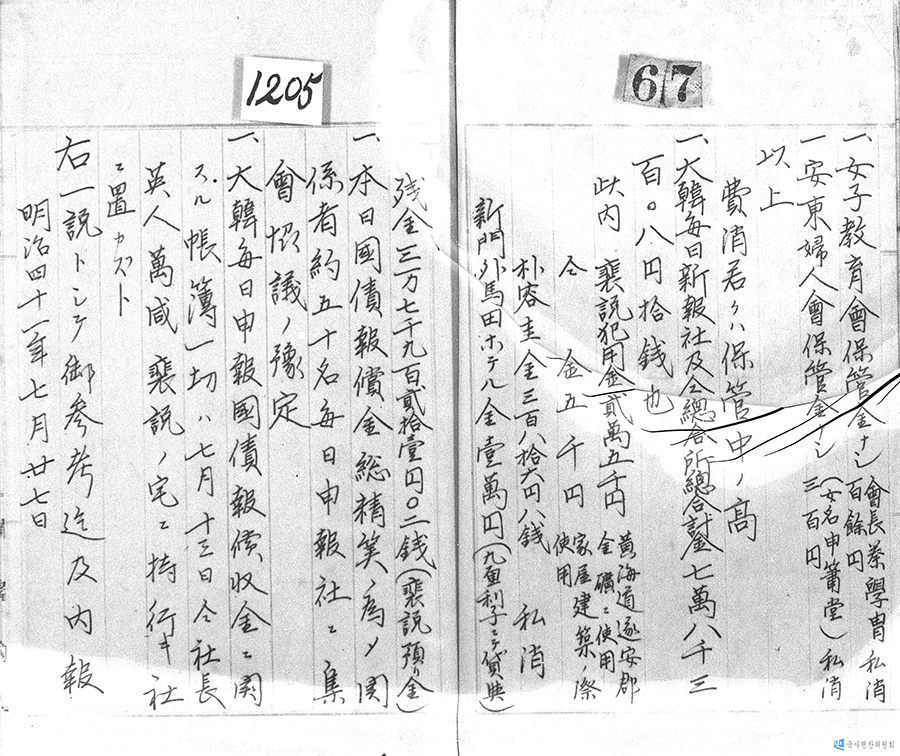 67
一、女子教育會保管金ナシ (會長蔡學冑私消
百餘円
一安東婦人會保管金ナシ (女名申簫堂) 私消
三百円
以上
費消若クハ保管中ノ高
一、大韓每日新報社及仝總合所總合計金七萬八千三
百〇八円拾銭也
此内 裵説犯用金貳萬五千円 黄海道遂安郡
金礦ニ使用
仝 金五千円 家屋建築ノ際
使用
朴容圭金三百八拾六円八銭 私消
新門外馬田ホテル金壹萬円(九重利子ニテ貸與)
1205
残金三万七千九百貳拾壹円〇二銭(裵説預金)
一、本日國債報償金総精算ノ為メ関
係者約五十名每日申報社ニ集
會協議ノ豫定
一、大韓每日申報國債報償収金ニ関
スル帳簿一切ハ七月十三日仝社長
英人萬咸裵説ノ宅ニ持行キ社
ニ置カズト
右一説トシテ御參考迄及内報
明治四十一年七月廿七日
국사편찬위원회